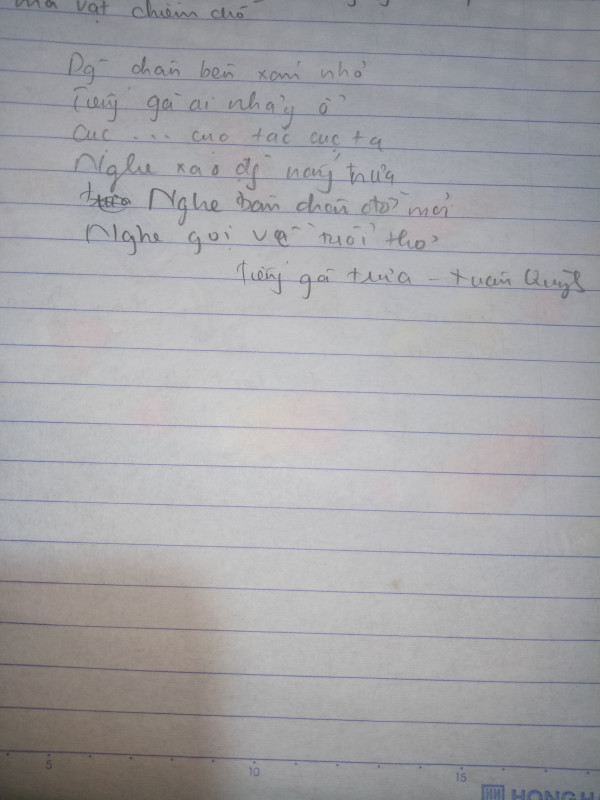 mà vật chiếm chỗ
Dg chân bên xóm nhỏ
Tiếng gà ai nhảy ổ
Cuc ... cuc tác cuc ta
Nghe xao dg nắng trưa
Nghe bàn chân đỡ mỏi
Nghe gọi về tuổi thơ
Tiếng gà trưa - xuân Quỳnh
5
10
15
HONG H